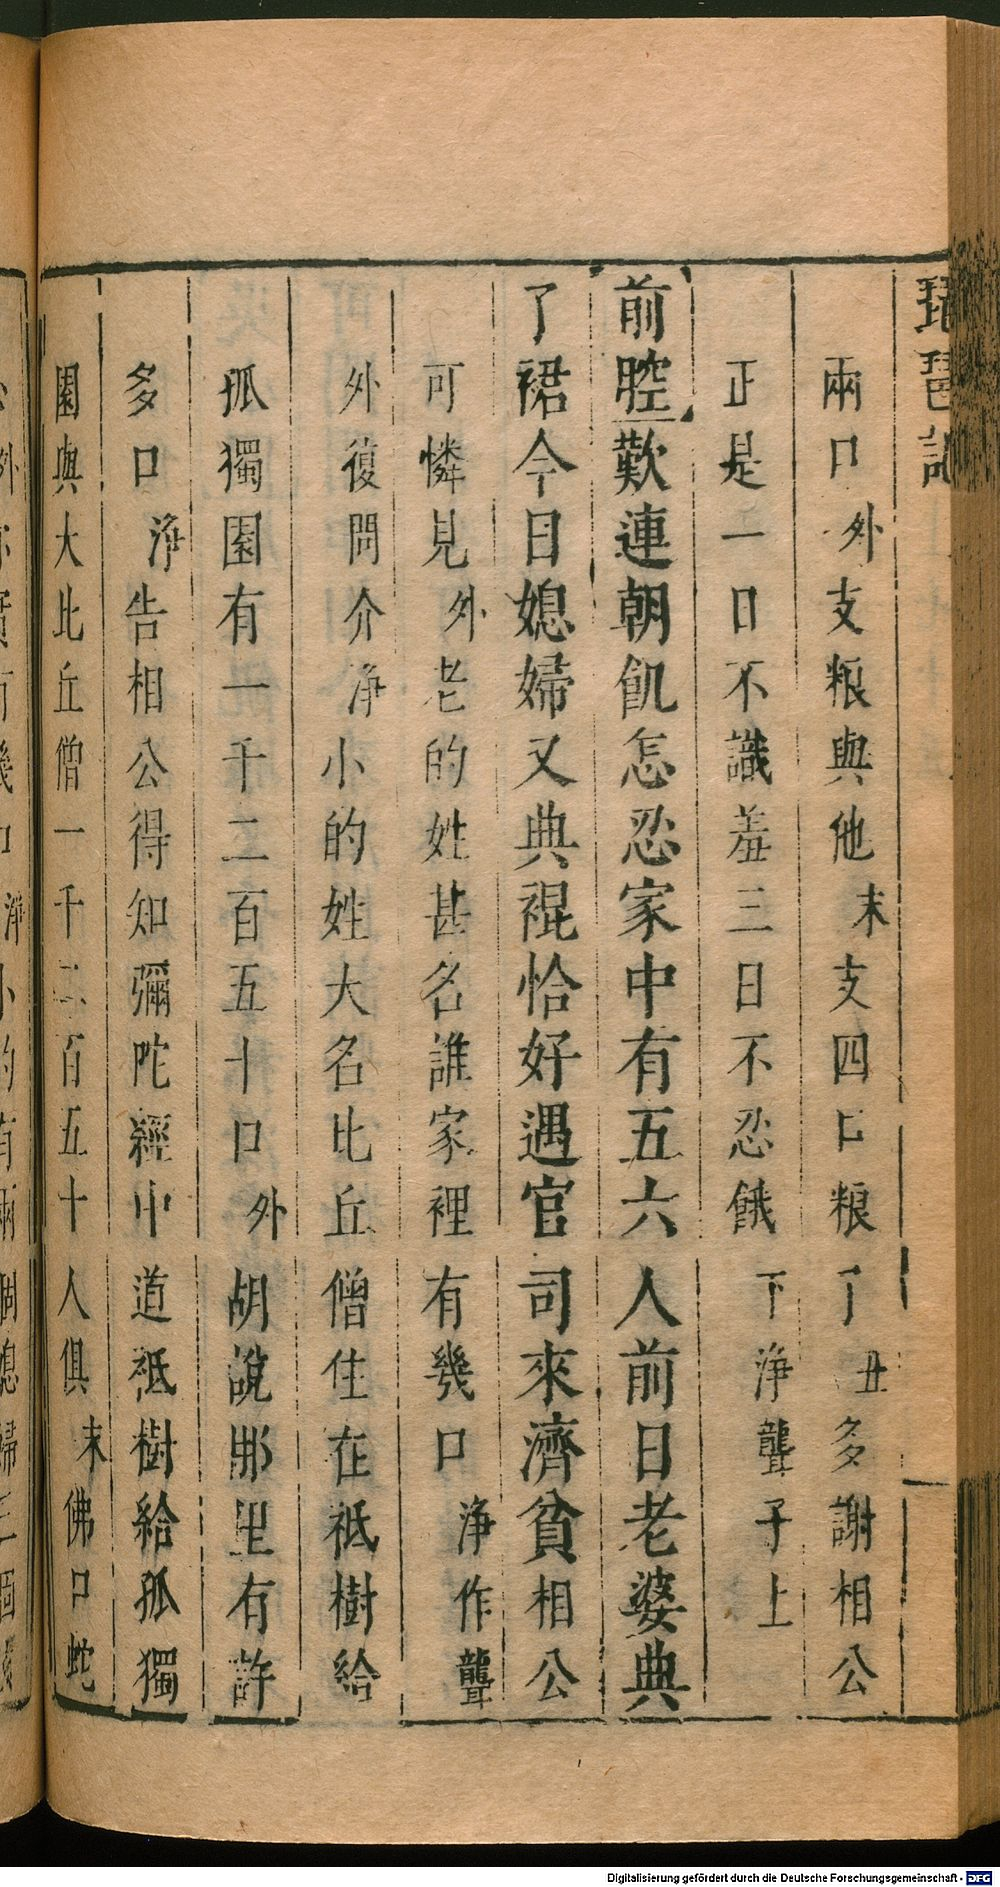 琵琶記
兩口外支粮與他末支四口粮了丑多謝相公
正是一日不識羞三日不忍餓下淨聾子上
前腔歎連朝飢怎忍家中有五六人前日老婆典
了裙今日媳婦又典裩恰好遇官司來濟貧相公
可憐見外老的姓甚名誰家裡有幾口淨作聾
外復問介淨小的姓大名比丘僧住在祗樹給
孤獨園有一千二百五十口外胡說那里有許
多口淨告相公得知彌陀經中道祗樹給孤獨
園與大比丘僧一千二百五十人俱末佛口蛇
Digitalisierung gefördert durch die Deutsche Forschungsgemeinschaft - DFG